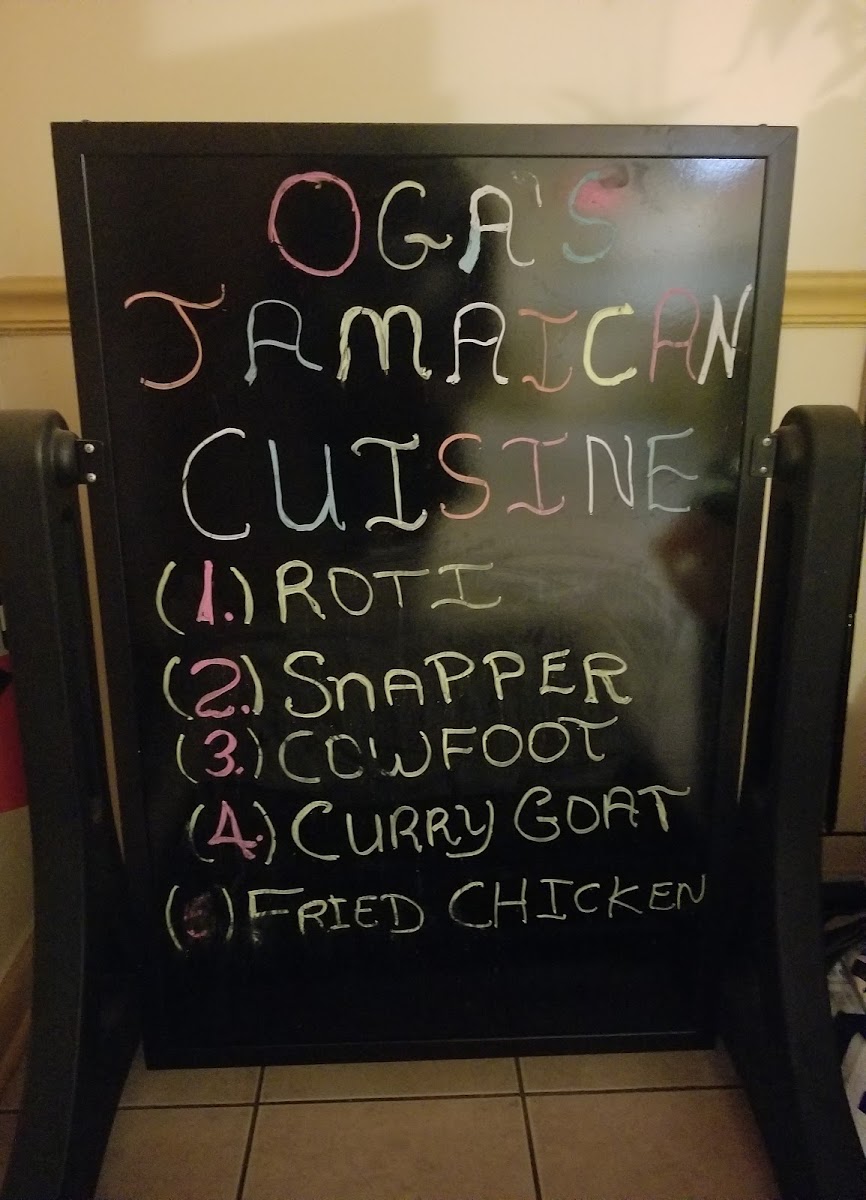 OGA'S
JAMAICAN
CUISINE
(1.) ROTI
(2.) SNAPPER
(3.) COWFOOT
(4.) CURRY GOAT
(5) FRIED CHICKEN